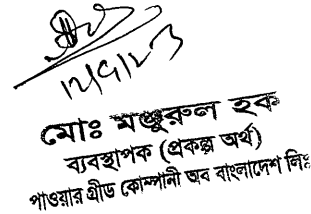 ১২/৭/২৩
মোঃ মঞ্জুরুল হক
ব্যবস্থাপক (প্রকল্প অর্থ)
পাওয়ার গ্রীড কোম্পানী অব বাংলাদেশ লিঃ